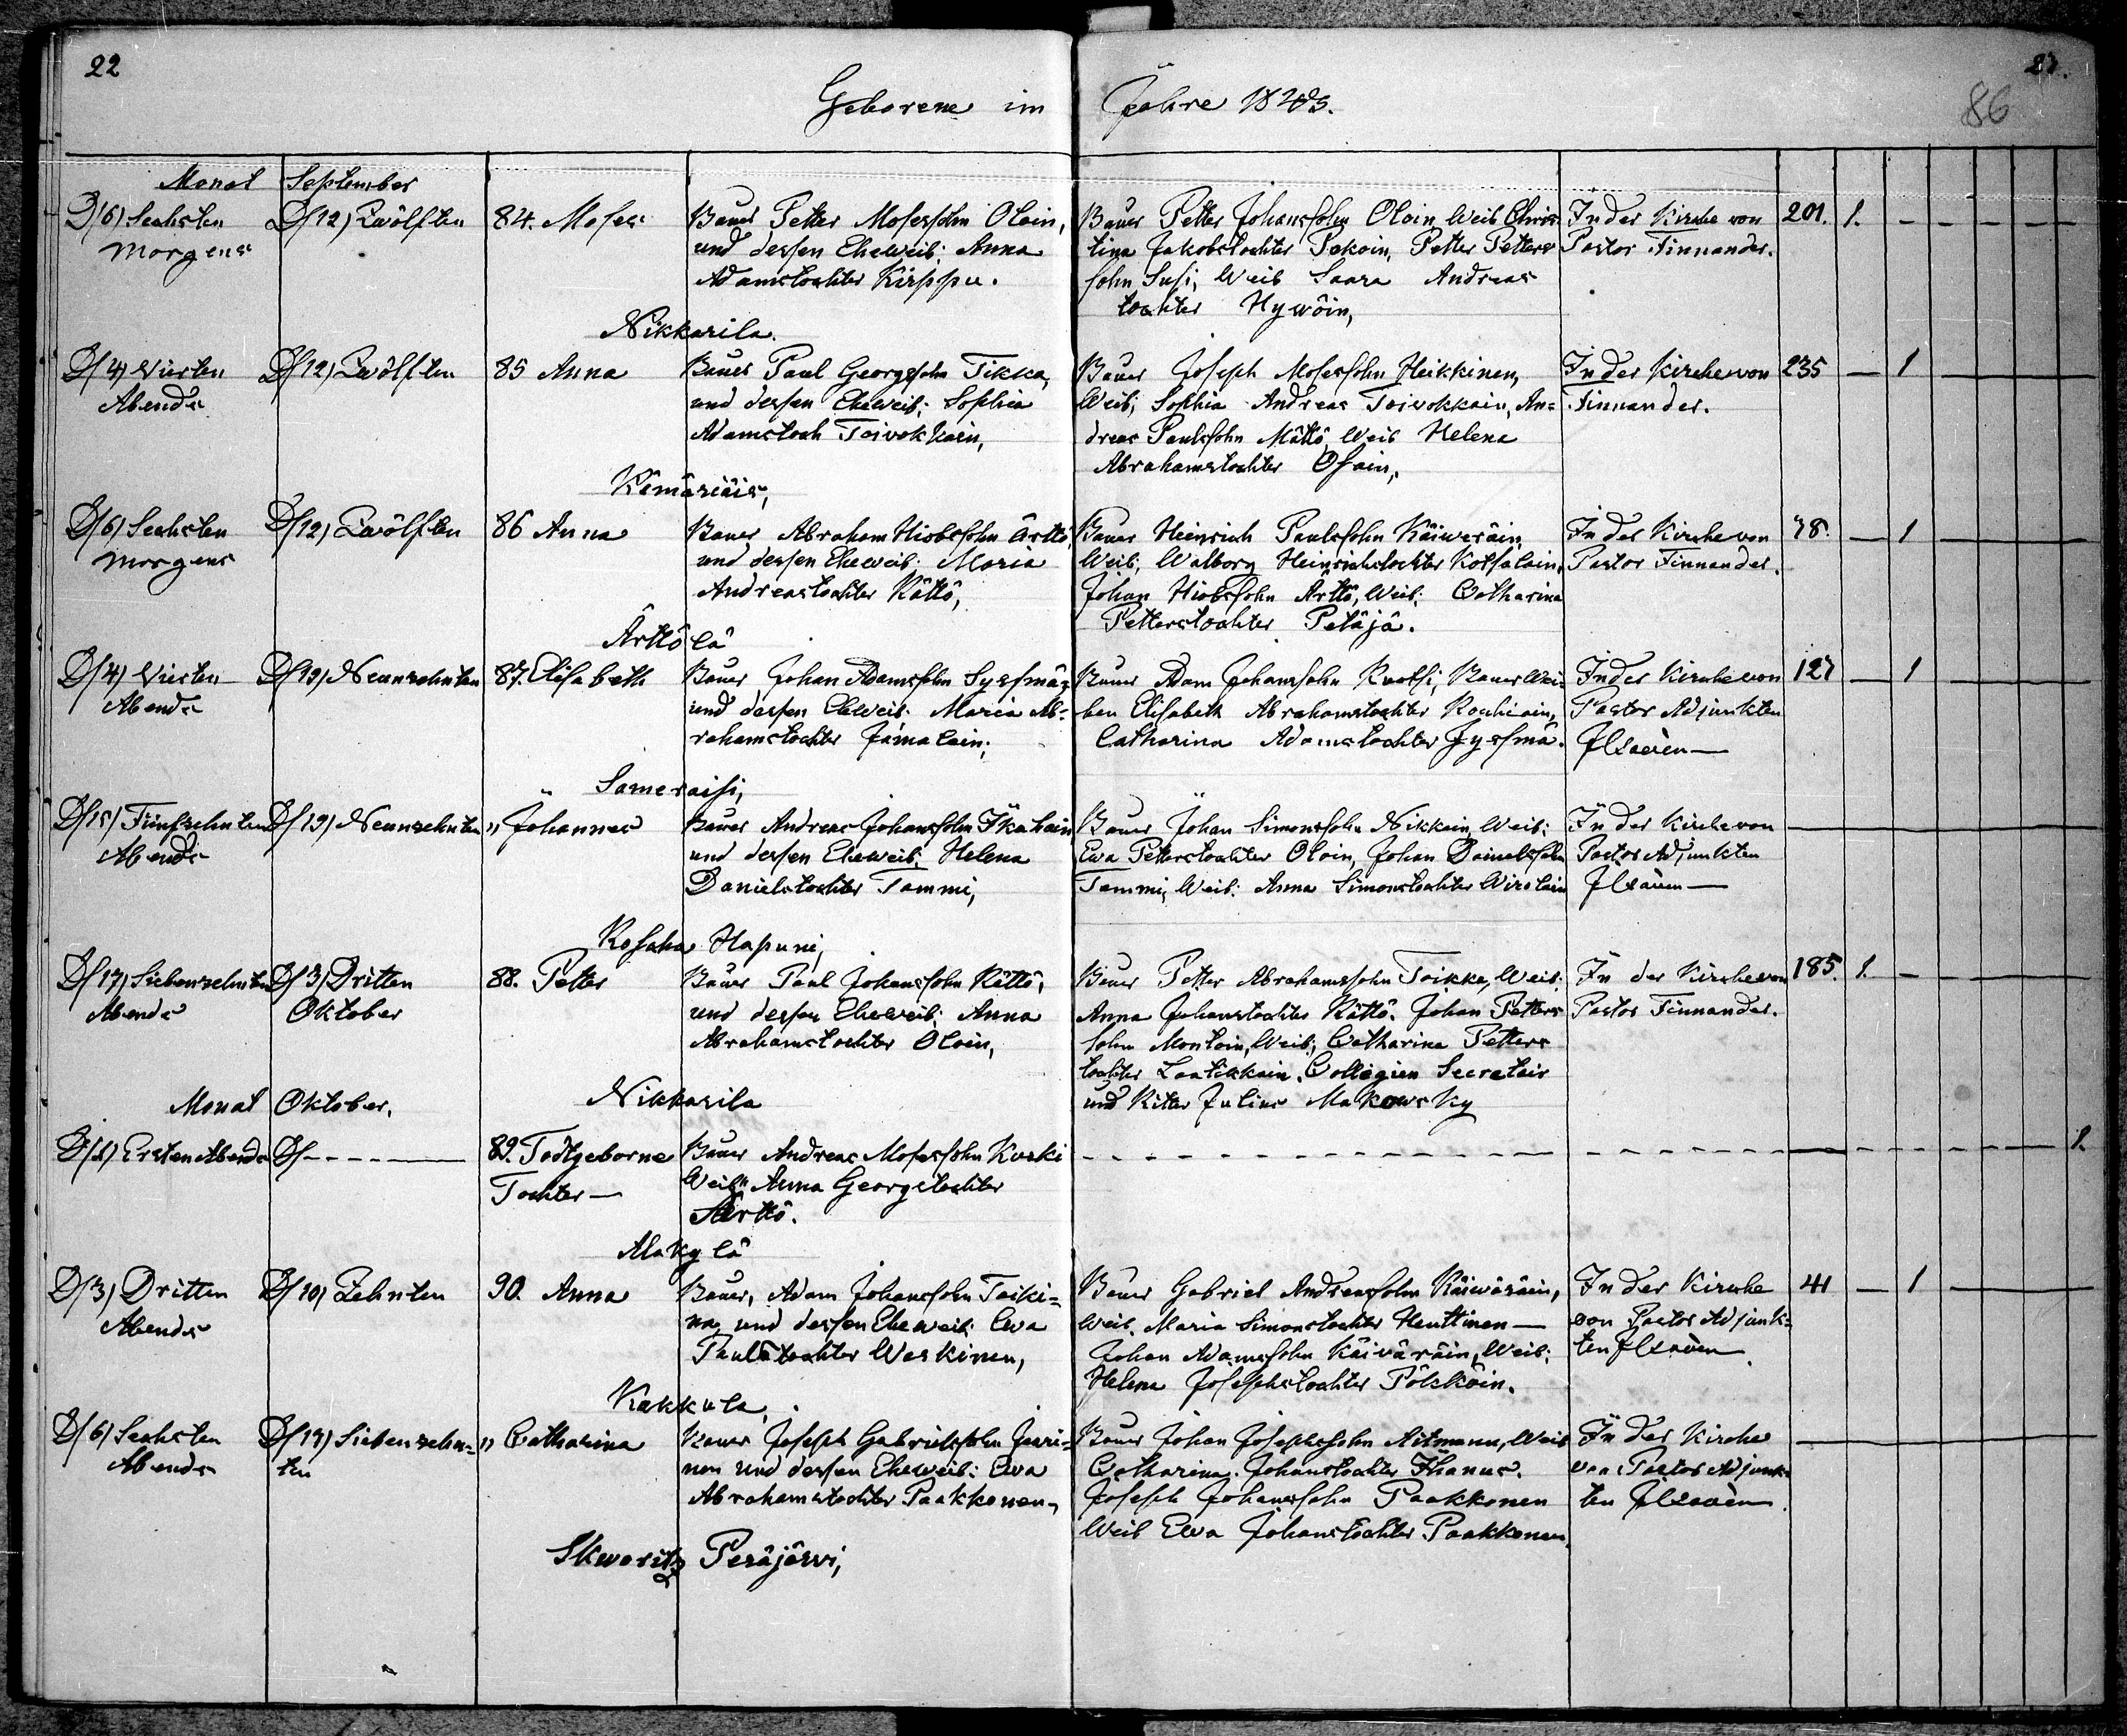 22
23.
86
Geborene im Jahre 1883.
Monat September
D/6) Sechsten D/12) Zwölften 84. Moses Bauer Petter Mosessohn Oloin, Bauer Petter Johanssohn Oloin, Weib Chris- In der Kirche von 201. 1. - - - - - -
Morgens und dessen Eheweib: Anna tina Jakobstochter Pekoin, Petter Petters Pastor Finnander.
Adamstochter Kirppu. sohn Susi, Weib Saara Andreas
tochter Hywöin,
Nikkarila.
D/4) Vierten D/12) Zwölften 85 Anna Bauer Paul Georgssohn Tikka, Bauer Joseph Mosessohn Heikkinen, In der Kirche von 235 — 1 —
Abends und dessen Eheweib; Sophia Weib; Sophia Andreas Toiwokkain, An= Finnander.
Adamstoch Toivokkain, dreas Paulssohn Mättö, Weib Helena
Abrahamstochter Olain,
Kämäräis,
D/6) Sechsten D/12) Zwölften 86 Anna Bauer Abraham Hiobssohn Ärttö, Bauer Heinrich Paulssohn Käiweräin, In der Kirche von 78. — 1 —
Morgens und dessen Eheweib: Maria Weib, Walborg Heinrichstochter Kotsalain, Pastor Finnander.
Andreastochter Kättö, Johan Hiobssohn Ärttö, Weib: Catharina
Petterstochter Petäjä.
Ärttölä
D/4) Vierten D/19) Neunzehnten 87. Elisabeth Bauer Johan Adamssohn Syssmä, Bauer Adam Johanssohn Ruotsi, Bauer Wei- In der Kirche von 127 — 1 —
Abends und dessen Eheweib: Maria Ab= ben Elisabeth Abrahamstochter Rochiain, Pastor Adjunkten
rahamstochter Jämäläin; Catharina Adamstochter Syssmä.
Sameraisi,
D/15) Fünfzehnten D/19) Neunzehnten " Johannes Bauer Andreas Johanssohn Ikalain, Bauer Johan Simonssohn Nikkain, Weib: In der Kirche von —
Abends und dessen Eheweib, Helena Ewa Petterstochter Oloin, Johan Danielssohn Pastor Adjunkten
Danielstochter Tammi, Tammi, Weib: Anna Simonstochter Wirolain
Kosaha Hapuni,
D/17) Siebenzehnten D/3) Dritten 88. Petter Bauer Paul Johanssohn Kättö, Bauer Petter Abrahamssohn Toikka, Weib: In der Kirche von 185. 1. -
Abends Oktober und dessen Eheweib: Anna Anna Johanstochter Kättö. Johan Petters Pastor Finnander.
Abrahamstochter Oloin, sohn Montoin, Weib; Catharina Petters
tochter Laatikkain. Collegien Secretair
Monat Oktober. Nikkarila und Riter Julius Makowsky
D/1) Ersten Abends D/ - - - - 89. Todtgeborne Bauer Andreas Mosessohn Koski - - - - - 1.
Tochter — Weib Anna Georgstochter
Ärttö.
Alakylä
D/3) Dritten D/10) Zehnten 90. Anna Bauer, Adam Johanssohn Taiki= Bauer Gabriel Andreassohn Käiwäräin, In der Kirche 41 — 1 —
Abends na und dessen Eheweib: Ewa Weib. Maria Simonstochter Huttinen — von Pastor Adjunk=
Paulstochter Weskinen, Johan Adamssohn Käiväräin, Weib: ten
Helena Josephstochter Pökköin.
Kakkula,
D/6) Sechsten D/17) Siebenzehn= " Catharina Bauer Joseph Gabrielssohn Juri= Bauer Johan Josephssohn Aitmann, Weib In der Kirche —
Abends ten nen und dessen Eheweib: Ewa Catharina Johanstochter Ihanus. von Pastor Adjunk=
Abrahamstochter Paakkonen, Joseph Johanssohn Paakkonen ten
Weib Ewa Johanstochter Paakkonen.
Skworitz Peräjärvi,